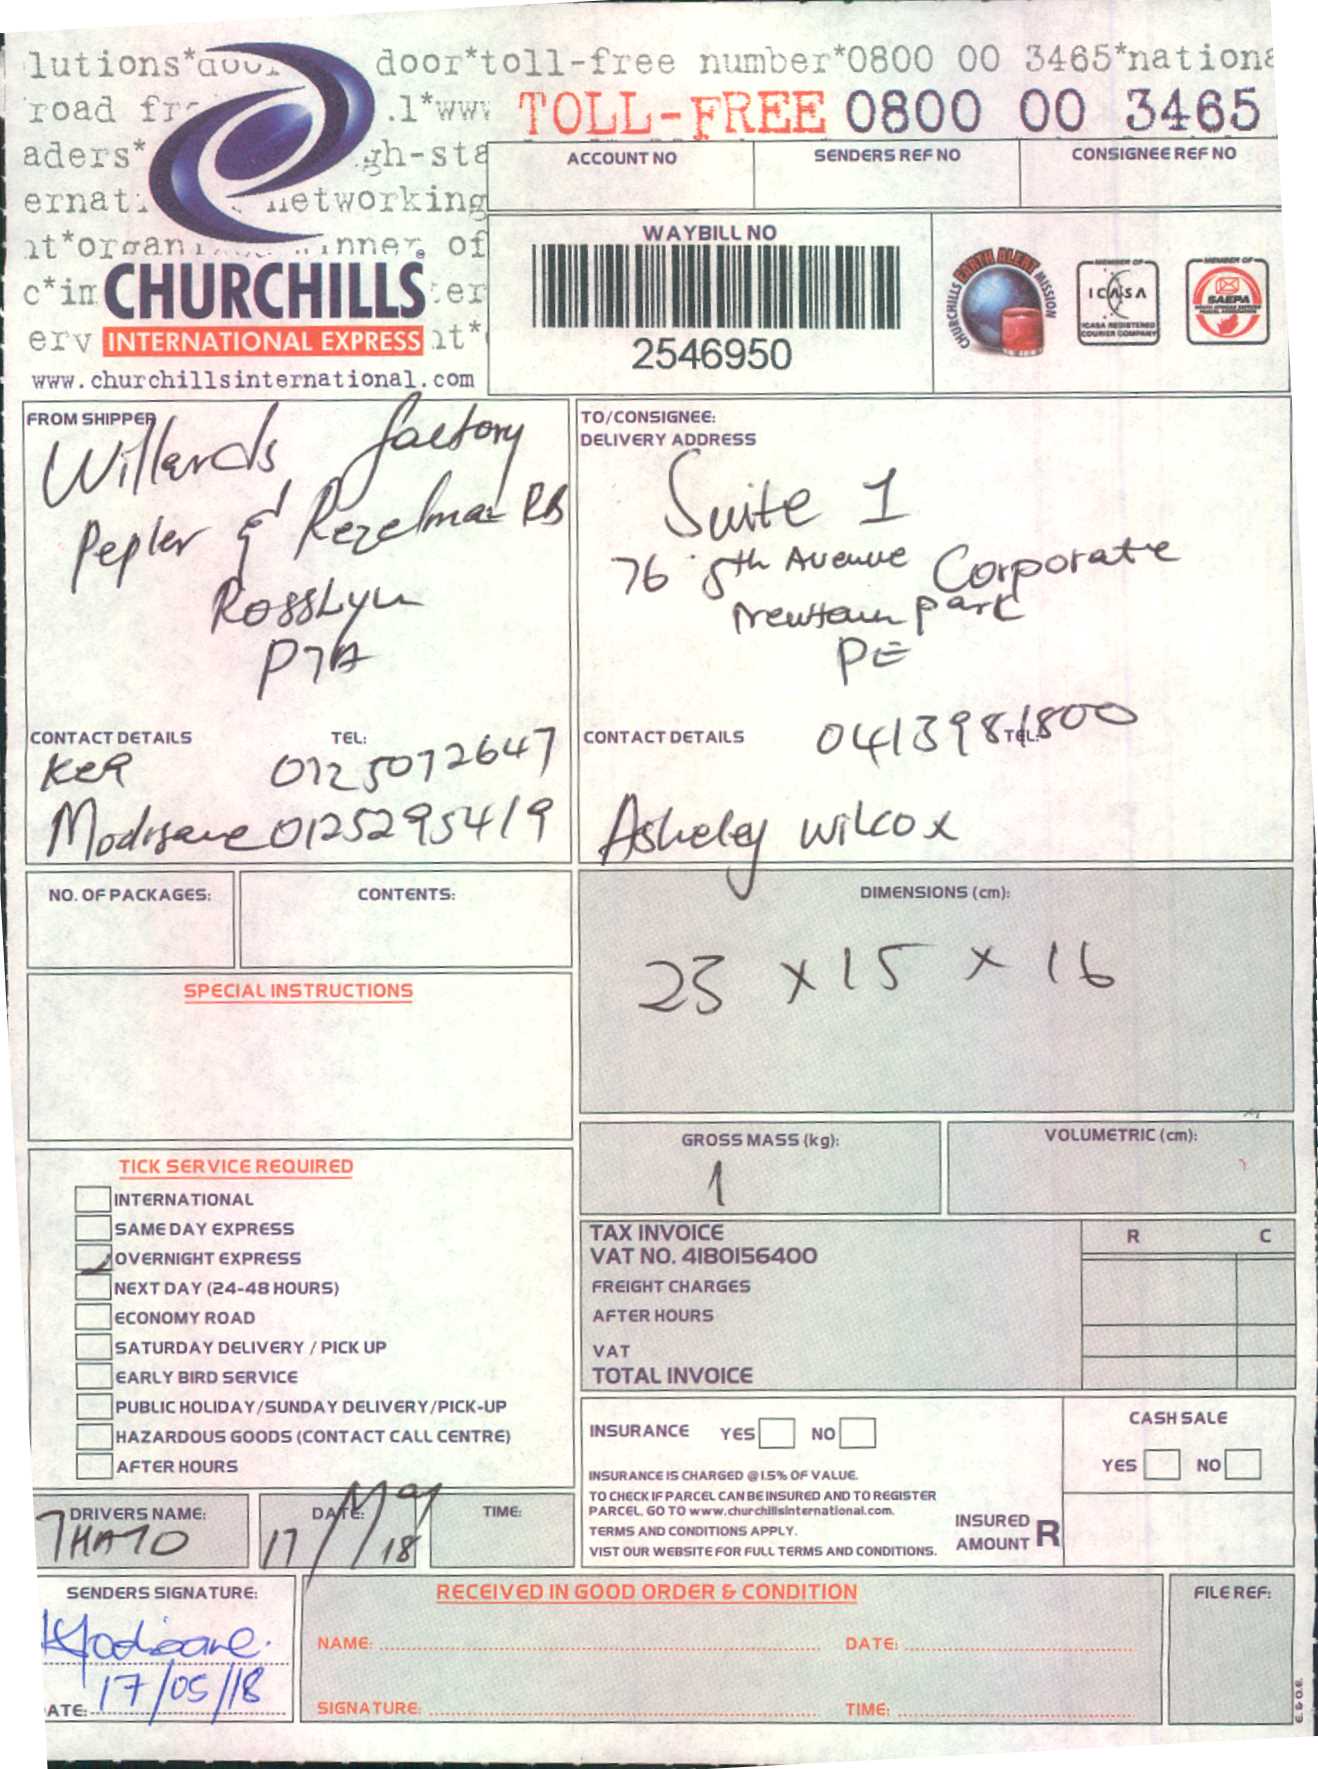 lutions*door door*toll-free number*0800 00 3465*nationa
road fre .l*www TOLL-FREE 0800 00 3465
aders* gh-sta
ernati networking
nt*organi winner of
c*in ter
erv nt*
CHURCHILLS
INTERNATIONAL EXPRESS
www.churchillsinternational.com
ACCOUNT NO SENDERS REF NO CONSIGNEE REF NO
WAYBILL NO
2546950
CHURCHILLS EARTH ALERT MISSION
MEMBER OF
ICASA
ICASA REGISTERED
COURIER COMPANY
MEMBER OF
SAEPA
FROM SHIPPER
Willards factory
Pepler & Rezelman RD
Rosslyn
PTA
CONTACT DETAILS TEL:
Kea 0125072647
Modisane 0125295419
TO/CONSIGNEE:
DELIVERY ADDRESS
Suite 1
76 5th Avenue Corporate
Newtown park
PE
CONTACT DETAILS TEL: 0413981800
Asheley wilcox
NO. OF PACKAGES: CONTENTS:
DIMENSIONS (cm):
23 x 15 x 16
SPECIAL INSTRUCTIONS
GROSS MASS (kg): VOLUMETRIC (cm):
1
TICK SERVICE REQUIRED
INTERNATIONAL
SAME DAY EXPRESS
OVERNIGHT EXPRESS
NEXT DAY (24-48 HOURS)
ECONOMY ROAD
SATURDAY DELIVERY / PICK UP
EARLY BIRD SERVICE
PUBLIC HOLIDAY/SUNDAY DELIVERY/PICK-UP
HAZARDOUS GOODS (CONTACT CALL CENTRE)
AFTER HOURS
TAX INVOICE R C
VAT NO. 4180156400
FREIGHT CHARGES
AFTER HOURS
VAT
TOTAL INVOICE
INSURANCE YES NO
INSURANCE IS CHARGED @ 1.5% OF VALUE.
TO CHECK IF PARCEL CAN BE INSURED AND TO REGISTER
PARCEL, GO TO www.churchillsinternational.com.
TERMS AND CONDITIONS APPLY.
VISIT OUR WEBSITE FOR FULL TERMS AND CONDITIONS.
INSURED
AMOUNT R
CASH SALE
YES NO
DRIVERS NAME: DATE: TIME:
THATO 17/May/18
SENDERS SIGNATURE:
Modisane.
DATE: 17/05/18
RECEIVED IN GOOD ORDER & CONDITION
NAME: DATE:
SIGNATURE: TIME:
FILE REF:
E. & O.E.